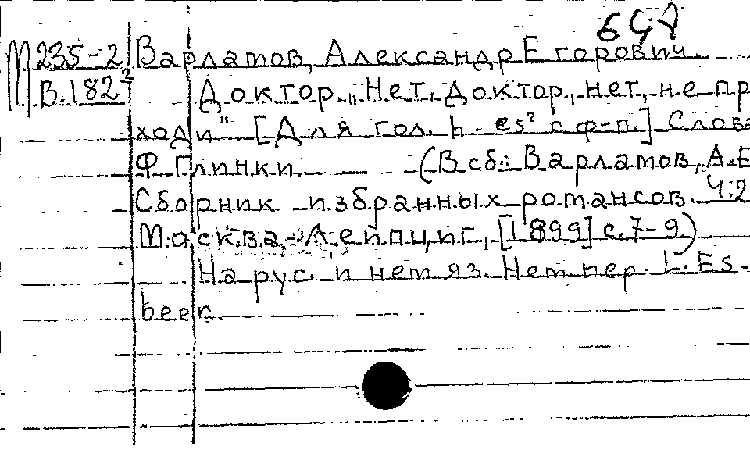 М 235-2 Варламов, Александр Егорович.
В.182 Доктор. „Нет, доктор, нет, не пр
ходи" [Для гол. h - es² с ф-п.] Слова
Ф. Глинки (В сб.: Варламов, А.Е
Сборник избранных романсов. Ч.2
Москва-Лейпциг, [1899] с.7-9.)
На рус. и нем яз. Нем пер. L. Es-
beer.